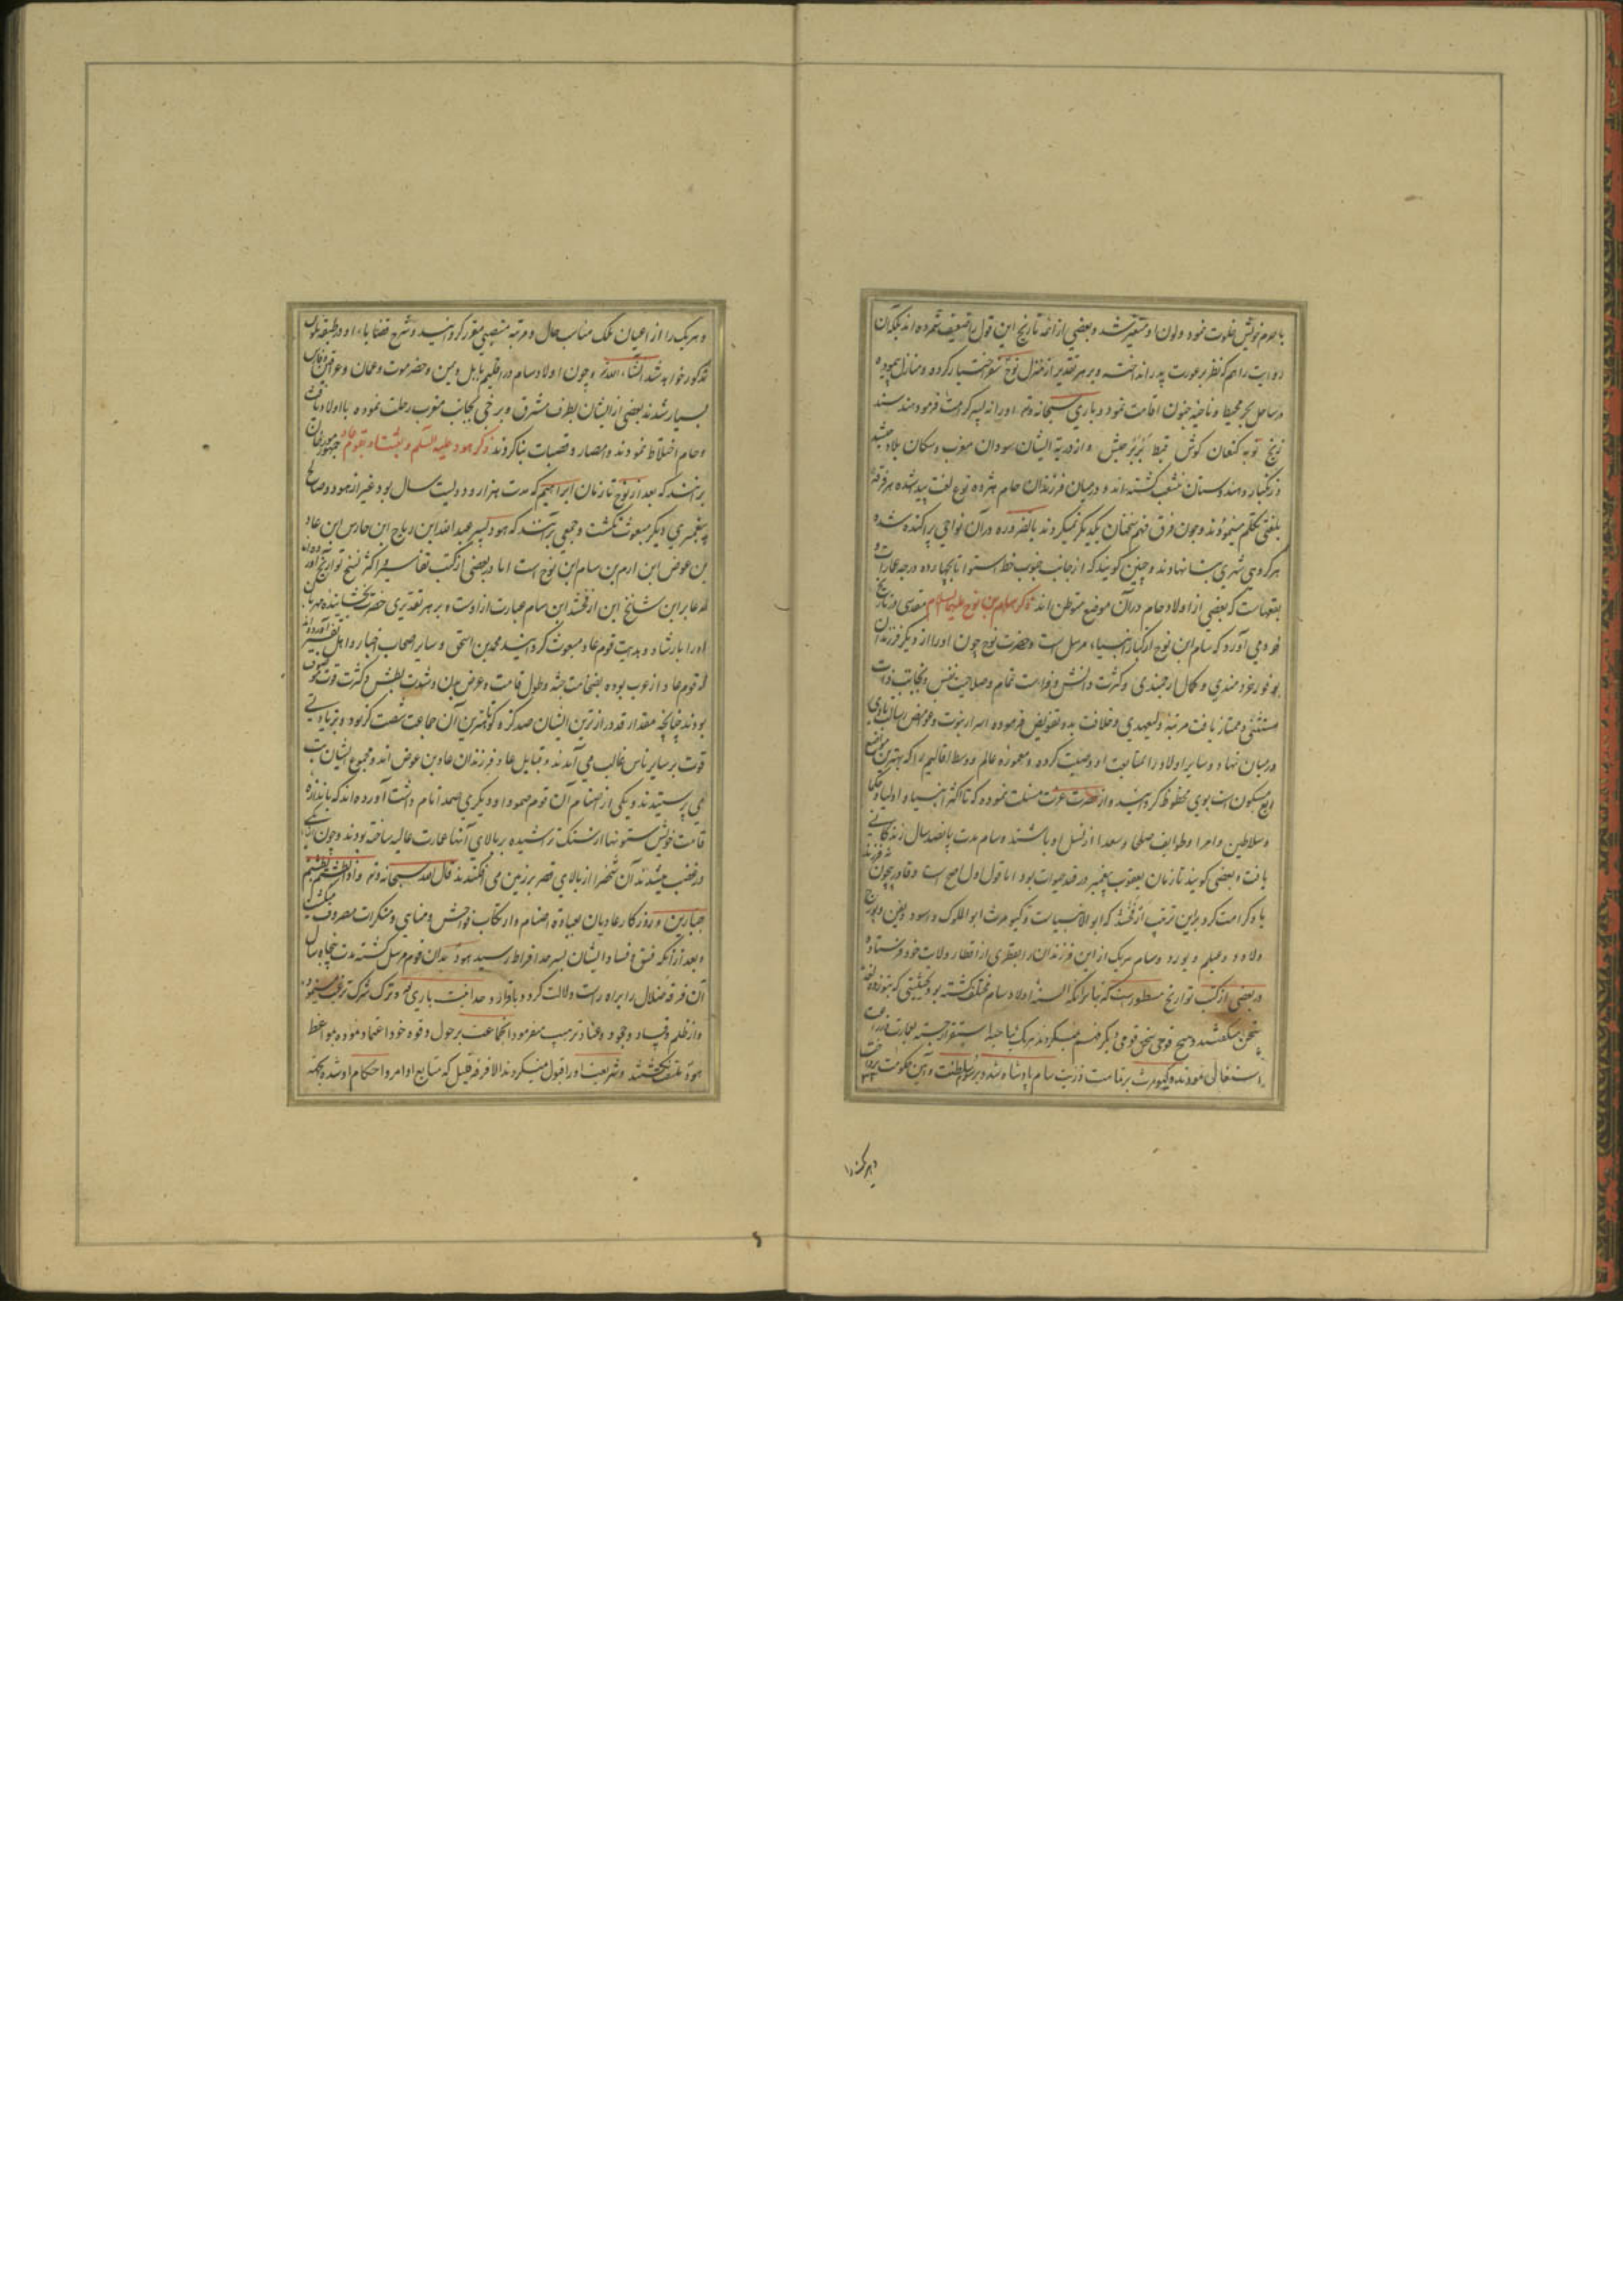 با حرم خویش خلوت نمود ولون او متغیر شد و بعضی از ائمه تاریخ این قول را ضعیف شمرده اند بلکه آن
روایت را هم که نظر بر عورت پدر انداخت و بر هر تقدیر از منزل نوح سفر اختیار کرده و منازل پیموده
در ساحل بحر محیط و ناحیه جنوب اقامت نمود و باری سبحانه و تع او را نه پسر کرامت فرمود هند سند
زنج نوبه کنعان کوش قبط بربر حبش و از ذریه ایشان سودان مغرب و سکان بلاد حبشه
و زنگبار و هندوستان منشعب گشته اند و در میان فرزندان حام هژده نوع لغت پیدا شده هر فرقه
بلغتی تکلم مینمودند و چون فرق فهم سخنان یکدیگر نمیکردند بالضروره در آن نواحی پراکنده شده
هر گروهی شهری بنا نهادند و چنین گویند که از جانب جنوب خط استوا تا بچهارده درجه عمارات و
بقعهاست که بعضی از اولاد حام در آن موضع متوطن اند ذکر سام بن نوح علیهما السلام مقدسی در تاریخ
خود می آورد که سام ابن نوح از کبار انبیاء مرسل است و حضرت نوح چون او را از دیگر فرزندان
بوفور خردمندی و کمال ارجمندی و کثرت دانش و فراست تمام و صلاحیت نفس و نجابت ذات
مستثنی و ممتاز یافت مرتبه ولیعهدی و خلافت بدو تفویض فرموده اسرار نبوت و غوامض رسالت با وی
در میان نهاد و سایر اولاد را بمتابعت او وصیت کرده و معموره عالم و وسط اقالیم را که بهترین مواضع
ربع مسکون است بوی محظوظ گردانید و از حضرت عزت مسئلت نموده که تا اکثر انبیا و اولیا و حکما
و سلاطین و امرا و طوایف صلحا و سعدا از نسل او باشند و سام مدت پانصد سال زندگانی
یافت و بعضی گویند تا زمان یعقوب پیغمبر در قید حیوات بود اما قول اول اصح است و قادر بیچون نه فرزند
باو کرامت کرد برین ترتیب ارفخشد که ابو الانبیاست و کیومرث ابو الملوک و اسود و یفن و یورج
و لاوذ و عیلم و بورد و سام هر یک از این فرزندان را بقطری از اقطار ولایت خود فرستاد
در بعضی از کتب تواریخ مسطور است که بنا برانکه السنه اولاد سام مختلف گشته بود بحیثیتی که بنوزده لغت
سخن میگفتند و هیچ قومی سخن قومی دیگر فهم نمیکردند هر یک بناحیه استقرار جسته بعمارت و زراعت
اشتغال نمودند و کیومرث بر قامت ذریت سام پادشاه شد و رسوم سلطنت و آیین حکومت
و هر یک را
و هر یک را از اعیان ملک مناسب حال و مرتبه منصبی مقرر گردانید و شرح قضایاء او در طبقه ملوک
مذکور خواهد شد انشاء الله تع و چون اولاد سام در اقلیم بابل و یمن و حضر موت و عمان و عراقین و فارس
بسیار شدند بعضی از ایشان بطرف مشرق و برخی بجانب مغرب رحلت نموده با اولاد یافث
و حام اختلاط نمودند و امصار و قصبات بنا کردند ذکر هود علیه السلم و بعثت او بقوم عاد جمهور مورخان
برانند که بعد از نوح تا زمان ابراهیم که مدت هزار و دویست سال بود غیر از هود و صالح
پیغمبری دیگر مبعوث نگشت و جمعی برانند که هود پسر عبد الله ابن رباح ابن حارس ابن عاد
بن عوض ابن ارم بن سام ابن نوح است اما در بعضی از کتب تفاسیر و اکثر نسخ تواریخ آورده اند
که عابر ابن شالخ ابن ارفخشد ابن سام عبارت از اوست و بر هر تقدیری حضرت بخشاینده مهربان
او را بارشاد و هدایت قوم عاد مبعوث گردانید محمد بن اسحق و سایر اصحاب اخبار و اهل تفسیر آورده اند
که قوم عاد از عرب بوده بضخامت جثه و طول قامت و عرض بدن و شدت بطش و کثرت قوت موصوف
بودند چنانچه مقدار قد درازترین ایشان صد گز و کوتاهترین آن جماعت شصت گز بود و بزیادتی
قوت بر سایر ناس غالب می آمدند و قبایل عاد فرزندان عاد بن عوض اند و مجموع ایشان بت
می پرستیدند و یکی از اصنام آن قوم صمود او دیگری صمد انام داشت آورده اند که باندازه
قامت خویش ستونها از سنگ تراشیده بر بالای آنها عمارت عالیه ساخته بودند و چون بر کسی
در غضب میشدند آن شخص را از بالای قصر بر زمین می افکندند قال الله سبحانه و تع و اذا بطشتم بطشتم
جبارین و روزگار عادیان بعبادة اصنام و ارتکاب فواحش و مناهی و منکرات مصروف میگشت
و بعد از آنکه فسق و فساد ایشان بسر حد افراط رسید هود بدان قوم مرسل گشته مدت پنجاه سال
آن فرقه ضلال را براه راست دلالت کرد و باقرار وحدانیت باری تع و ترک شرک ترغیب مینمود
و از ظلم و فساد و جحود و عناد ترهیب میفرمود انجماعت بر حول و قوه خود اعتماد نموده بمواعظ
هود ملتفت نگشتند و شریعت او را قبول نمیکردند الا فرقه قلیل که متابع اوامر و احکام او شده بکمه